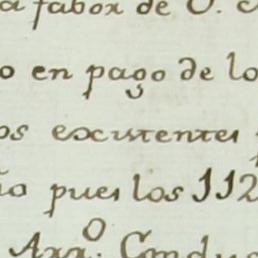 a fabor de D.
o en pago de lo
os existentes
ño pues los 112
Arxº. Conduc